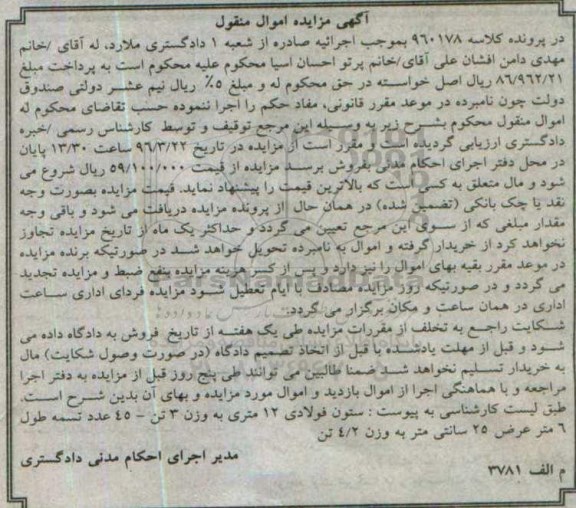 آگهی مزایده اموال منقول
در پرونده کلاسه ۹۶۰۱۷۸ بموجب اجرائیه صادره از شعبه ۱ دادگستری ملارد، له آقای /خانم
مهدی دامن افشان علی آقای/خانم پرتو احسان آسیا محکوم علیه محکوم است به پرداخت مبلغ
۸۶/۹۶۲/۲۱ ریال اصل خواسته در حق محکوم له و مبلغ ۵٪ ریال نیم عشر دولتی صندوق
دولت چون نامبرده در موعد مقرر قانونی، مفاد حکم را اجرا ننموده حسب تقاضای محکوم له
اموال منقول محکوم بشرح زیر به وسیله این مرجع توقیف و توسط کارشناس رسمی /خبره
دادگستری ارزیابی گردیده است و مقرر است از مزایده در تاریخ ۹۶/۳/۲۲ ساعت ۱۳/۳۰ پایان
در محل دفتر اجرای احکام مدنی بفروش برسد مزایده از قیمت ۵۹/۱۰۰/۰۰۰ ریال شروع می
شود و مال متعلق به کسی است که بالاترین قیمت را پیشنهاد نماید. قیمت مزایده بصورت وجه
نقد یا چک بانکی (تضمین شده) در همان حال از پرونده مزایده دریافت می شود و باقی وجه
مقدار مبلغی که از سوی این مرجع تعیین می گردد و حداکثر یک ماه از تاریخ مزایده تجاوز
نخواهد کرد از خریدار گرفته و اموال به نامبرده تحویل خواهد شد در صورتیکه برنده مزایده
در موعد مقرر بقیه بهای اموال را نپردازد و پس از کسر هزینه مزایده بنفع ضبط و مزایده تجدید
می گردد و در صورتیکه روز مزایده مصادف با ایام تعطیل شود مزایده فردای اداری ساعت
اداری در همان ساعت و مکان برگزار می گردد.
شکایت راجع به تخلف از مقررات مزایده طی یک هفته از تاریخ فروش به دادگاه داده می
شود و قبل از مهلت یادشده یا قبل از اتخاذ تصمیم دادگاه (در صورت وصول شکایت) مال
به خریدار تسلیم نخواهد شد ضمنا طالبین می توانند طی پنج روز قبل از مزایده به دفتر اجرا
مراجعه و با هماهنگی اجرا از اموال بازدید و اموال مورد مزایده و بهای آن بدین شرح است.
طبق لیست کارشناسی به پیوست : ستون فولادی ۱۲ متری به وزن ۳ تن - ۴۵ عدد تسمه طول
۶ متر عرض ۲۵ سانتی متر به وزن ۴/۲ تن
مدیر اجرای احکام مدنی دادگستری
م الف ۳۷۸۱